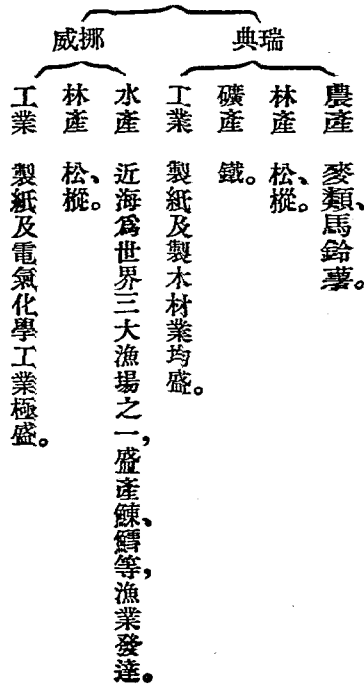 瑞典
農產　麥類、馬鈴薯。
林產　松、樅。
礦產　鐵。
工業　製紙及製木材業均盛。
挪威
水產　近海爲世界三大漁場之一，盛產鰊、鱈等，漁業發達。
林產　松、樅。
工業　製紙及電氣化學工業極盛。